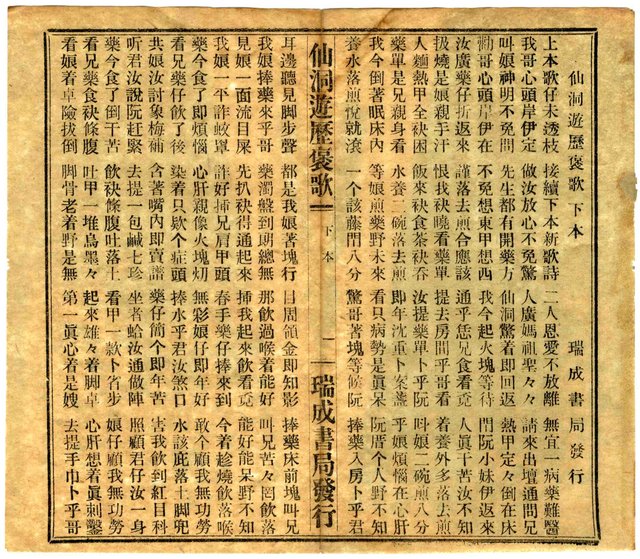 仙洞遊歷褒歌 下本 瑞成書局發行
上本歌仔未透枝 接續下本新歌詩 二人恩愛不放離 無宜一病藥難醫
我哥心頭岸伊定 做汝放心不免驚 人廣媽祖聖々々 請來出壇通問兄
叫娘神明不免問 先生都有開藥方 仙洞驚着即回返 熱甲定々倒在床
勸哥心頭岸伊在 不免想東甲想西 我今起火塊等待 門阮小妹伊返來
汝廣藥仔折返來 謹落去煎合應該 通乎恁兄食看覓 人眞干苦汝不知
扱燒是娘親手汗 恨我袂曉看藥單 提去房間乎哥看 着外多落去煎
人麵熱甲全袂困 飯來袂食茶袂吞 汝提藥單卜乎阮 叫娘二碗煎八分
藥單是兄親身看 水養二碗落去煎 即年沈重卜案盞 乎娘煩惱在心肝
我今倒著眠床內 等娘煎藥野未來 看只病勢是眞呆 阮厝个人野不知
善水落煎悅就滾 一个該藤門八分 驚哥著塊等候阮 捧藥入房卜乎君
仙洞遊歷褒歌 下本 一 瑞成書局發行
耳邊聽見脚步聲 都是我娘著塊行 目周領金即知影 捧藥床前塊叫兄
我娘捧藥來乎哥 藥濁盤到朗總無 那飲過喉着能好 叫兄苦々罔飲落
見娘一面流目屎 先扒袂得通起來 挿我起來飲看覓 能好能呆野不知
我娘一平詐蚊罩 許好挿兄肩甲頭 春手藥仔捧來到 今着趁燒飲落喉
藥今食了即煩惱 心肝親像火塊㓤 無彩娘仔即年好 敢个顧我無功勞
看兄藥仔飲了後 染着只欵个症頭 捧水乎君汝煞口 水該庇落土脚兜
共娘汝討象梅補 含著嘴內即賣譜 藥仔簡个即年苦 害我飲到紅目科
听君汝說阮赶緊 去提一包鹹七珍 坐者蛤汝通做陣 照顧君仔汝一身
藥今食了倒干苦 飲袂條腹吐落土 看甲一款卜省步 娘仔顧我無功勞
看兄藥食袂條腹 吐甲一堆烏墨々 起來雄々着脚卓 心肝想着眞刺鑿
看娘着卓險拔倒 脚骨老着野是無 第一眞心着是嫂 去提手巾卜乎哥